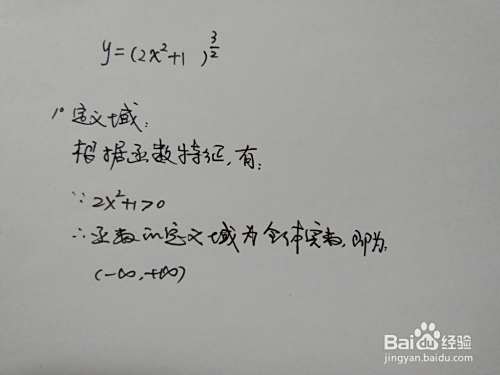 y=(2x²+1)^(3/2)
1°定义域：
根据函数特征，有：
∵2x²+1>0
∴函数的定义域为全体实数，即为：
(-∞,+∞)
Bai du 经验
jingyan.baidu.com